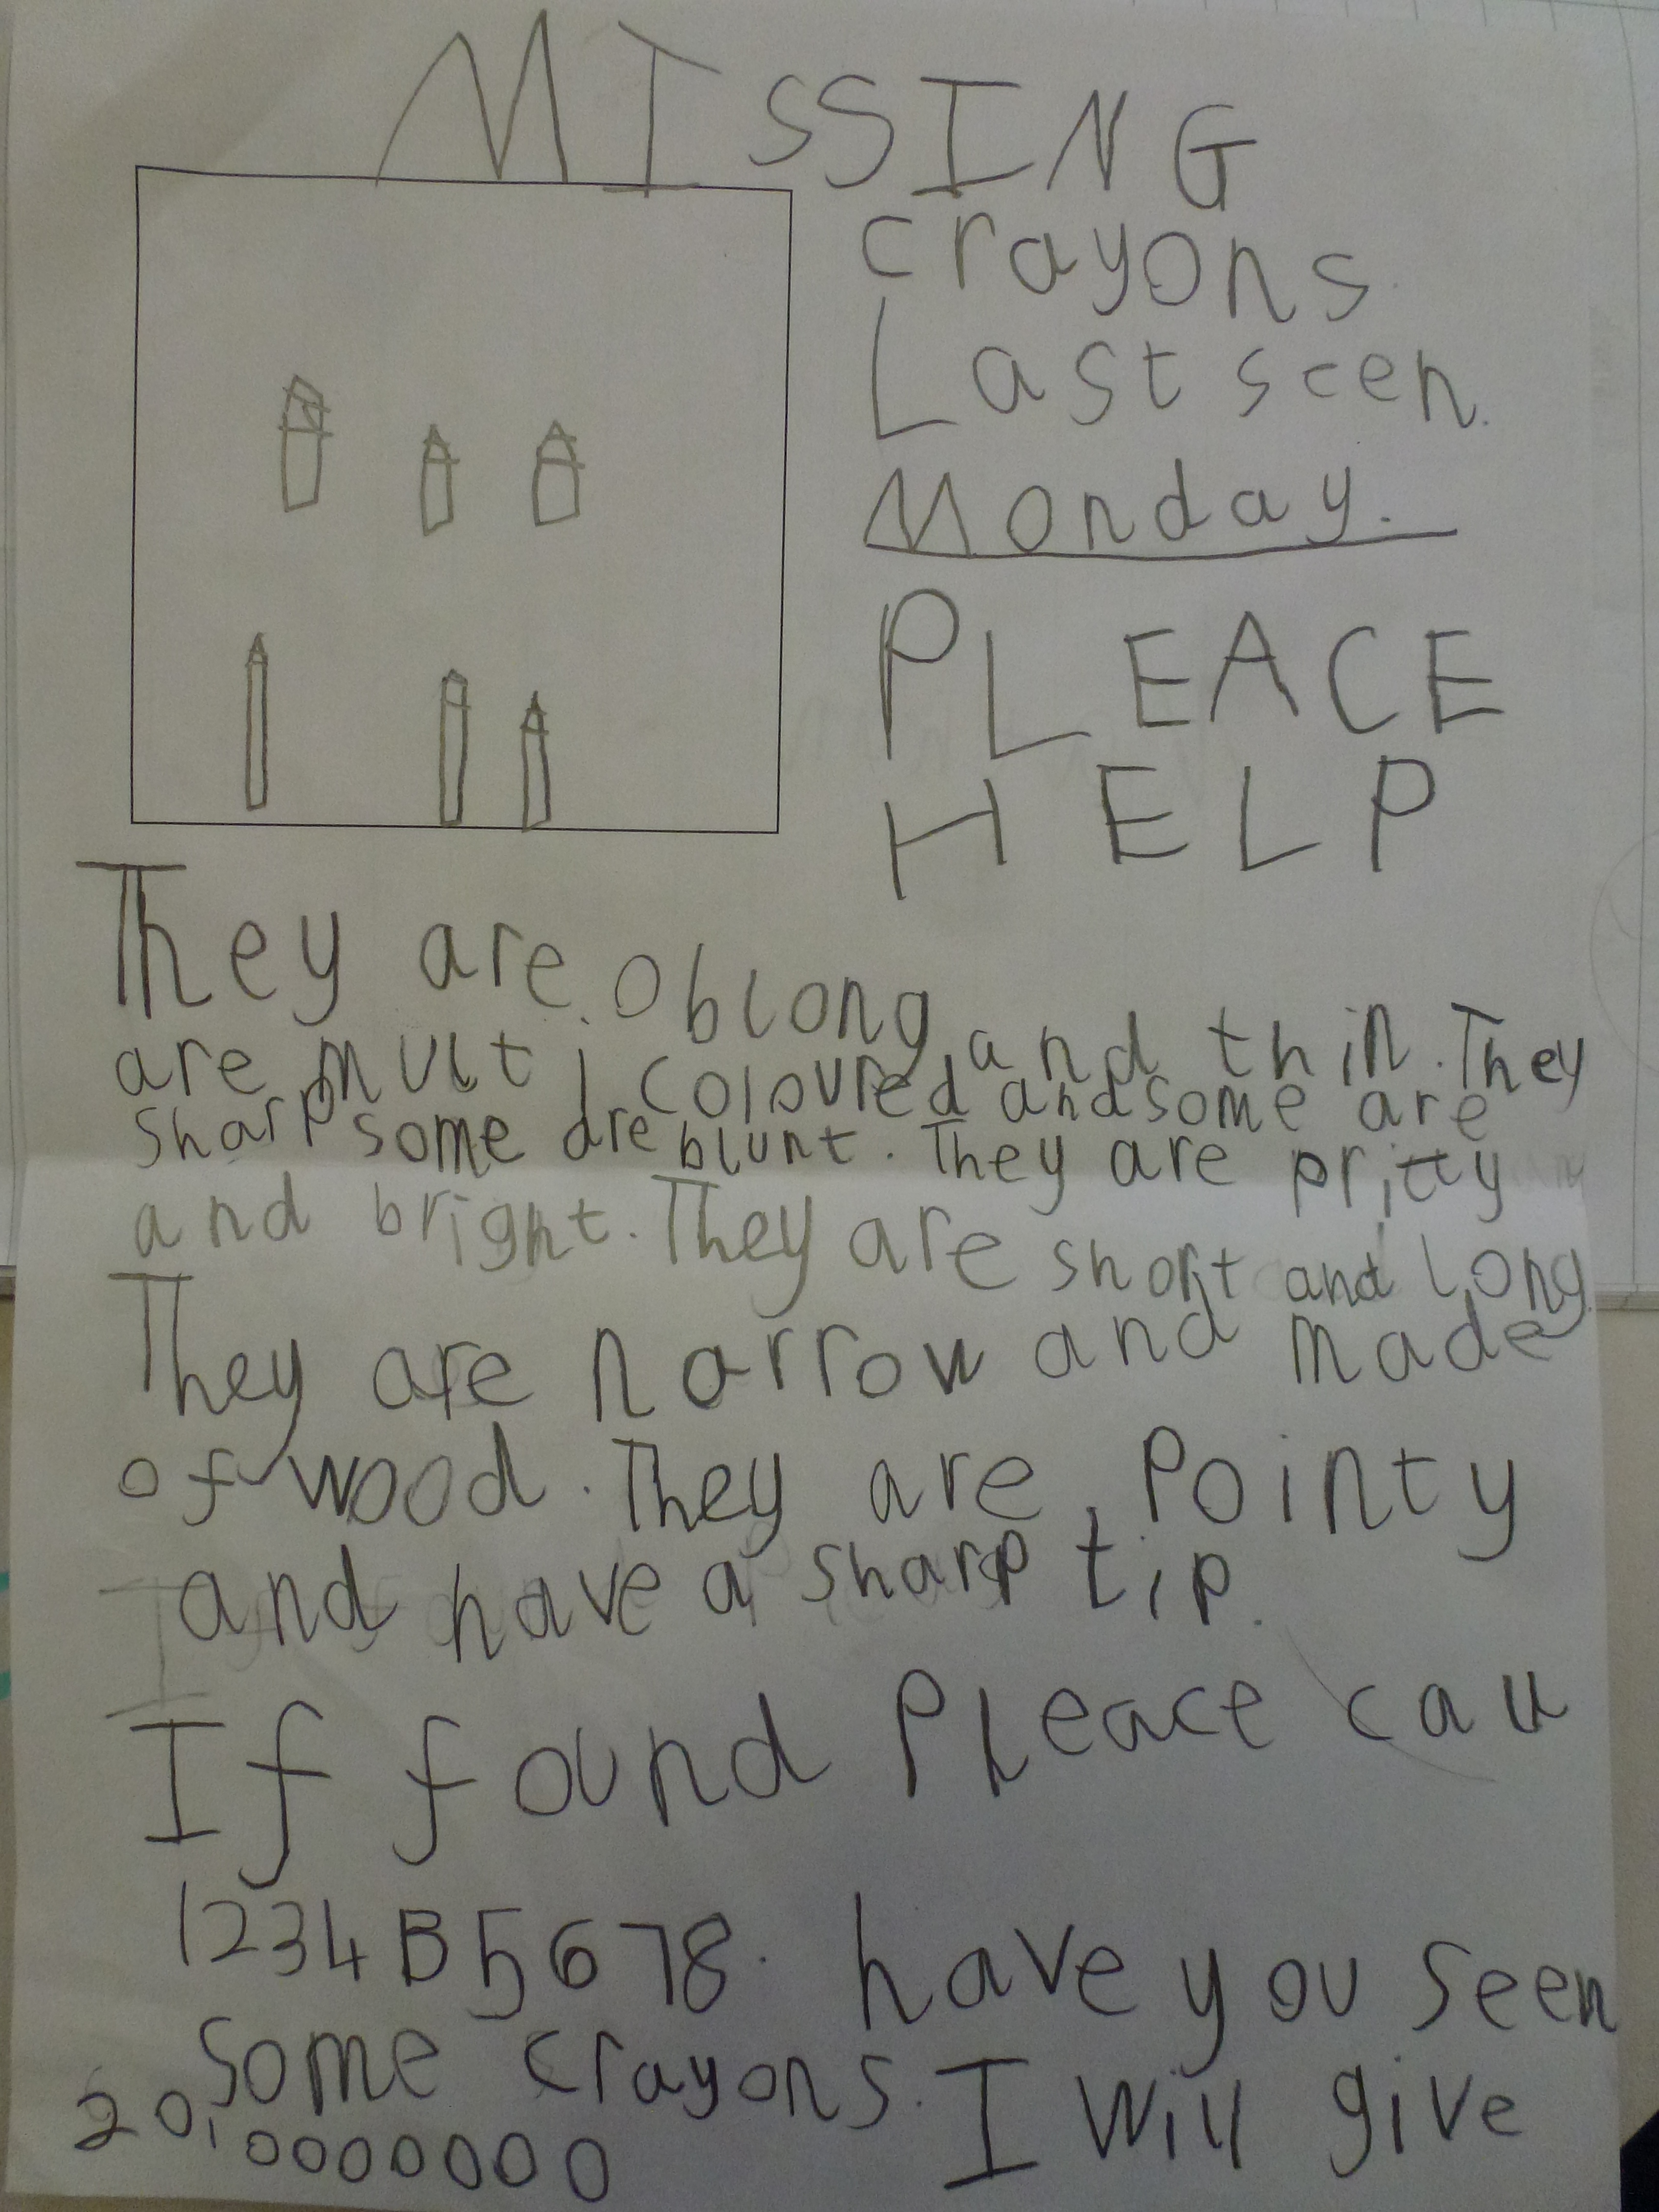 MISSING
crayons.
Last seen.
Monday.
PLEACE
HELP
They are oblong and thin. They
are multi coloured and some are
sharp some are blunt. They are pritty
and bright. They are short and long
They are narrow and made
of wood. They are pointy
and have a sharp tip.
If found Pleace call
1234B5678. have you seen
some crayons. I will give
20,0000000